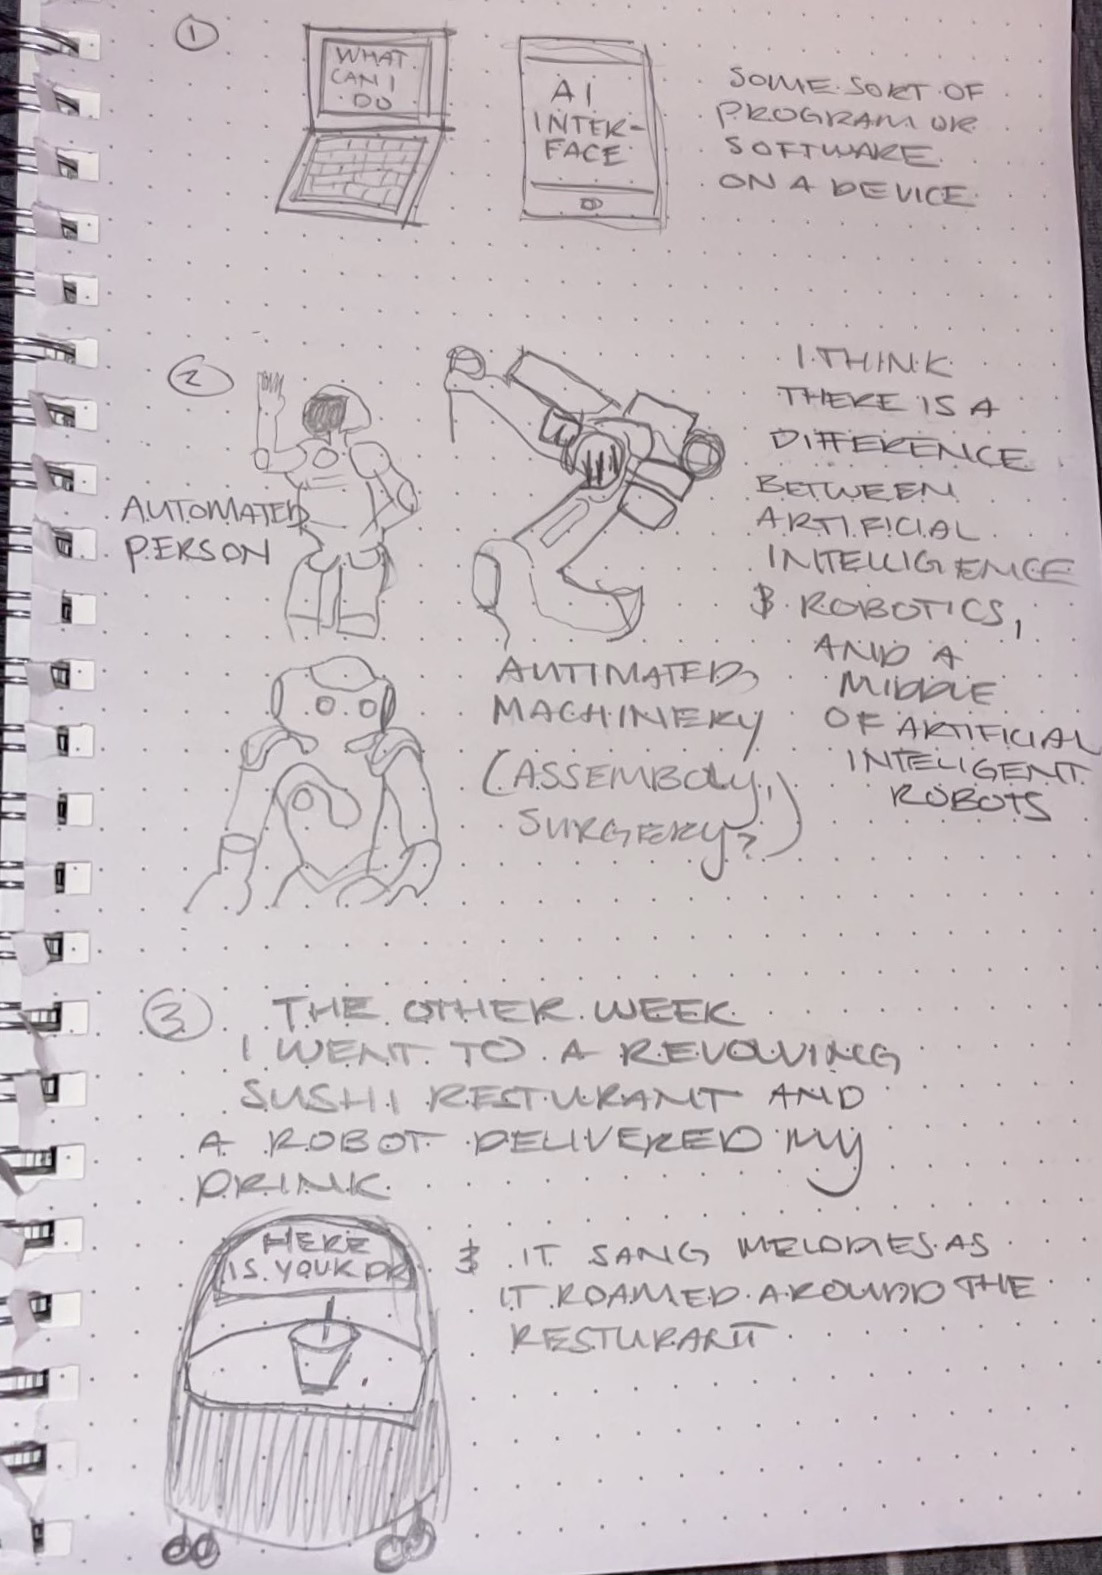 1
WHAT
CAN I
DO
AI
INTER-
FACE
SOME SORT OF
PROGRAM OR
SOFTWARE
ON A DEVICE
2
AUTOMATED
PERSON
AUTIMATED
MACHINERY
(ASSEMBOLY,
SURGERY?)
I THINK
THERE IS A
DIFFERENCE
BETWEEN
ARTIFICIAL
INTELLIGENCE
& ROBOTICS,
AND A
MIDDLE
OF ARTIFICIAL
INTELIGENT
ROBOTS
3 THE OTHER WEEK
I WENT TO A REVOLVING
SUSHI RESTURANT AND
A ROBOT DELIVERED MY
DRINK
HERE
IS YOUR DR
& IT SANG MELODIES AS
IT ROAMED AROUND THE
RESTURANT